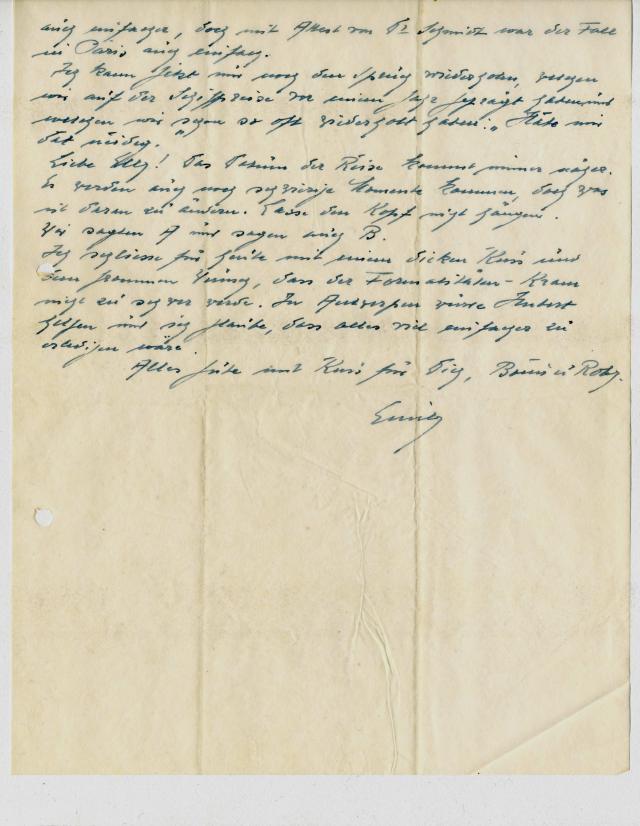 auch einfacher, doch mit Attest von Dr Schmidt war der Fall
in Paris auch einfach.
Ich kann jetzt nur noch den Spruch wiederholen, welchen
wir auf der Schiffsreise vor einem Jahr geprägt haben und
welchen wir schon so oft wiederholt haben: „
dat
Liebe! Das Datum der Reise kommt immer näher.
Es werden auch noch schwierige Momente kommen, doch was
ist daran zu ändern. Lasse den Kopf nicht hängen.
Wir sagten A und sagen auch B.
Ich schliesse für heute mit einem dicken Kuss und
dem frommen Wunsch, dass der Formalitäten-Kram
nicht zu schwer würde. In Antwerpen würde Hubert
helfen und ich glaube, dass alles viel einfacher zu
erledigen wäre.
Alles Gute und Kuss für Dich,